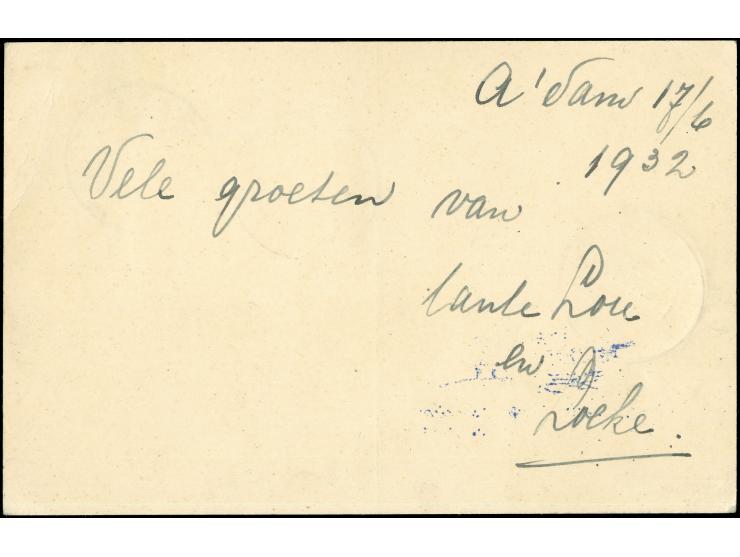 A'dam 17/6
1932
Vele groeten van
tante Lou
en
Loeke.